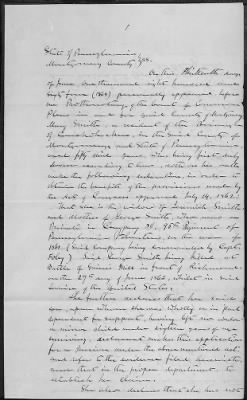 State of Pennsylvania,
Montgomery County } ss.
On this thirteenth day
of June, one thousand eight hundred and
sixty four (1864) personally appeared before
me Prothonotary of the Court of Common
Pleas in and for said County of Montgomery
Mary Smith, a resident of the Borough
of Conshohocken, in the said County of
Montgomery and State of Pennsylvania
aged fifty six years, who being first duly
sworn according to law, doth on her oath
make the following declaration, in order to
obtain the benefits of the provision made by
the Act of Congress approved July 14, 1862:
That she is the widow of Smith
and Mother of George Smith, who was a
Private in Company 95th Regiment of
Pennsylvania Volunteers, in the war of
1861. (said Company being commanded by Capt.
Foley) said George Smith being killed at
Battle of Gaines Hill in front of Richmond
on the 27th day of June 1862, whilst in said
service of the United States.
She further declares that her said
son, upon whom she was wholly or in part
dependent for support, having left no widow
or minor child under sixteen years of age
surviving, declarant makes this application
for a pension under the above mentioned act
and refers to the evidence filed herewith,
and that in the proper department, to
establish her claim.
She also declares that she has not